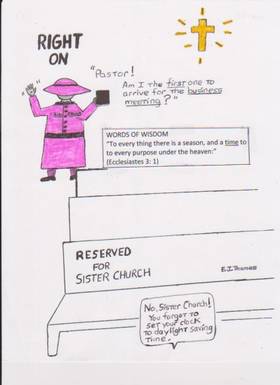 RIGHT
ON
"Pastor!
Am I the first one to
arrive for the business
meeting?"
WORDS OF WISDOM
"To every thing there is a season, and a time to
to every purpose under the heaven:"
(Ecclesiastes 3: 1)
RESERVED
FOR
SISTER CHURCH
E.J. Thomas
No, Sister Church!
You forgot to
set your clock
to daylight saving
time.